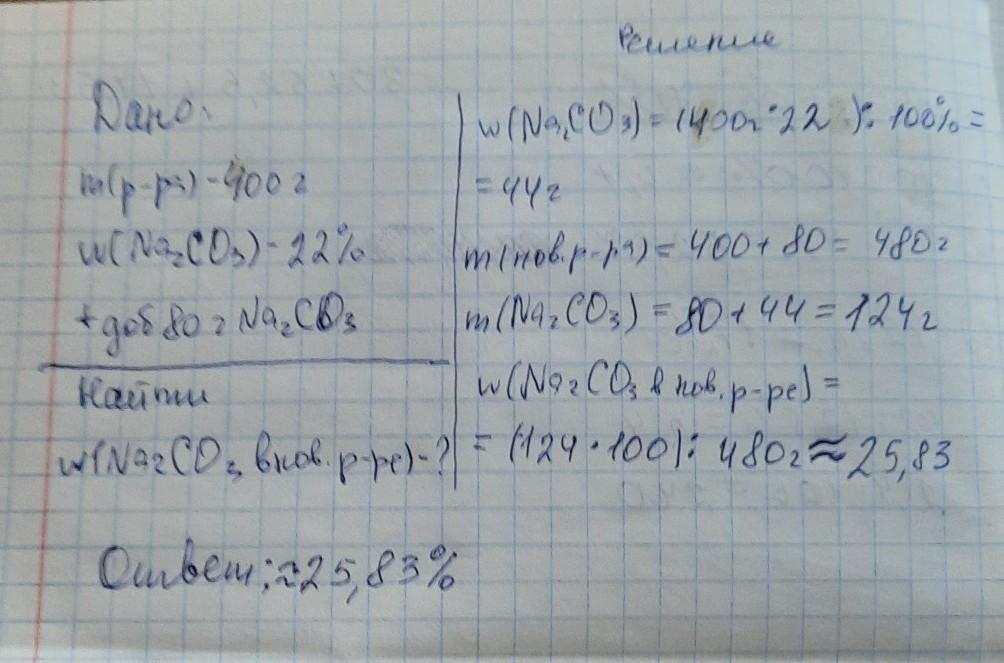 Решение
Дано:
m(р-ра) - 400 г
w(Na₂CO₃) - 22%
+ доб 80 г Na₂CO₃
Найти
w(Na₂CO₃ в нов. р-ре) - ?
w(Na₂CO₃) = (400г · 22 ) : 100% =
= 44 г
m(нов. р-ра) = 400 + 80 = 480 г
m(Na₂CO₃) = 80 + 44 = 124 г
w(Na₂CO₃ в нов. р-ре) =
= (124 · 100) : 480 г ≈ 25,83
Ответ: ≈ 25,83%